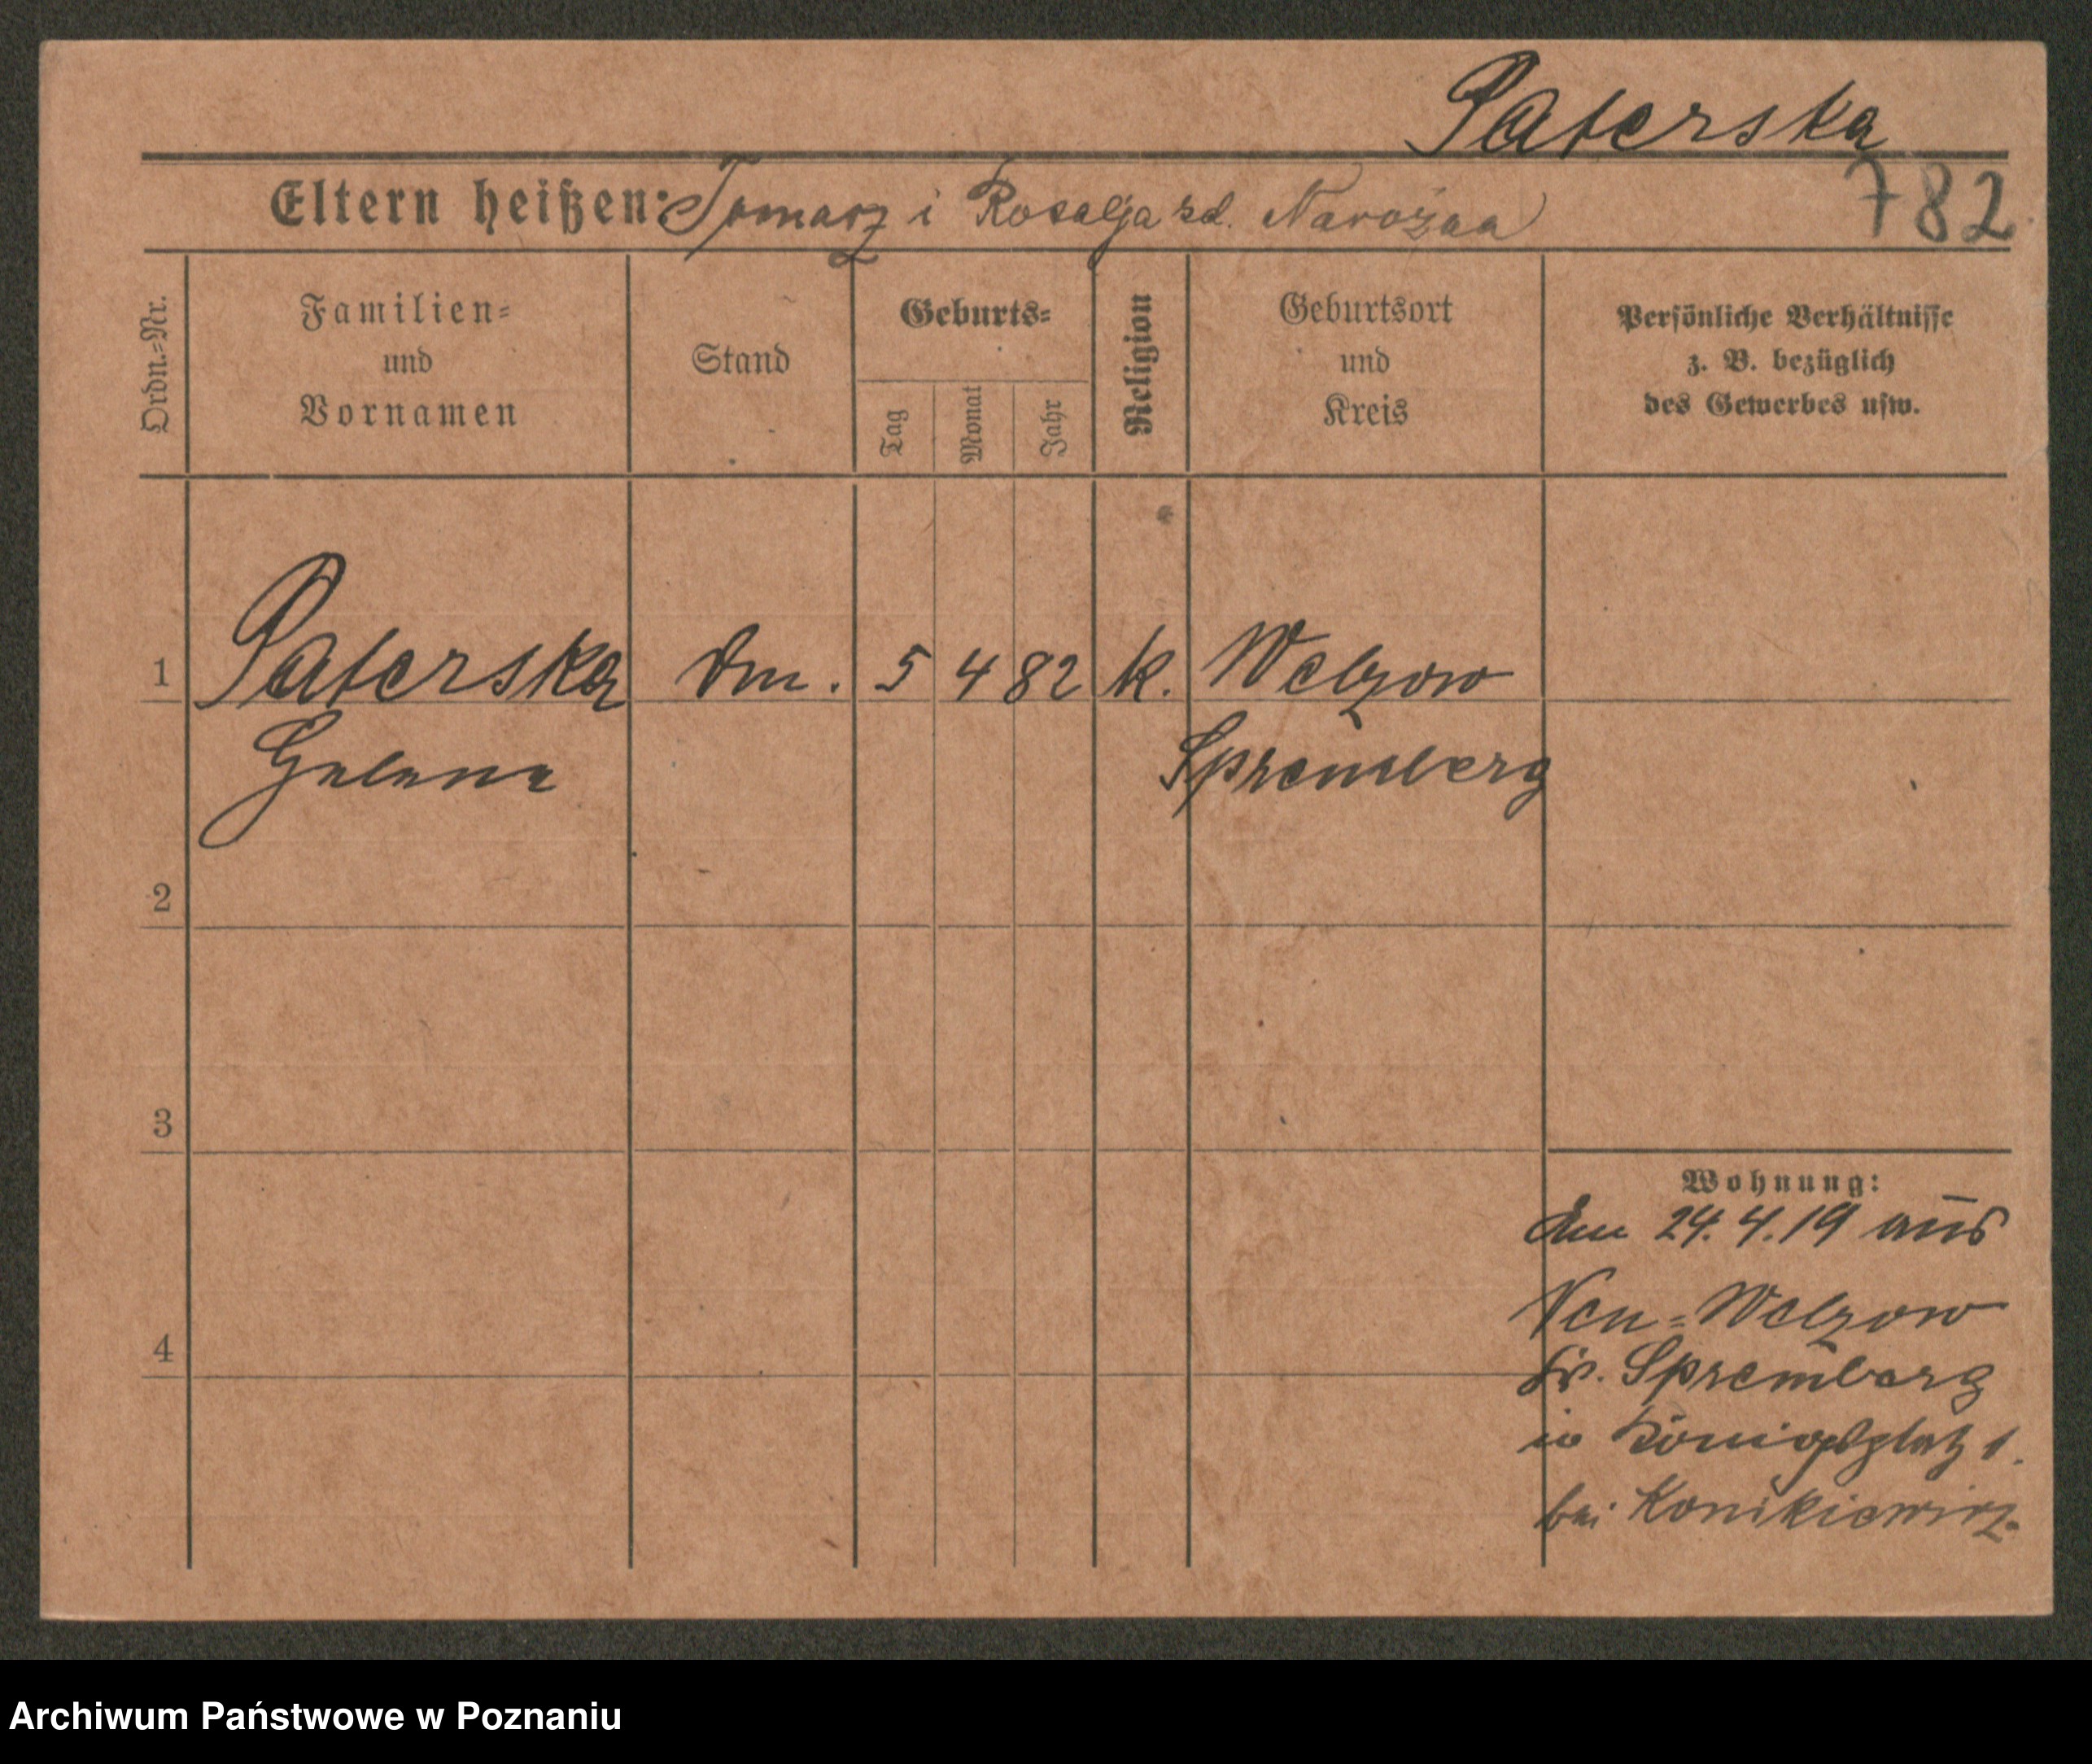 Paterska
Eltern heißen: Tomasz i Rosalja zd. 782
Ordn.=Nr.
Familien=
und
Vornamen
Stand
Geburts=
Tag
Monat
Jahr
Religion
Geburtsort
und
Kreis
Persönliche Verhältnisse
z. B. bezüglich
des Gewerbes usw.
1 Paterska 5 4 82 k. Welzow
Spremberg
2
3
4
Wohnung:
Am 24.4.19 aus
Neu=Welzow
Kr. Spremberg
in Königsplatz 1.
bei Konikiewicz.
Archiwum Państwowe w Poznaniu